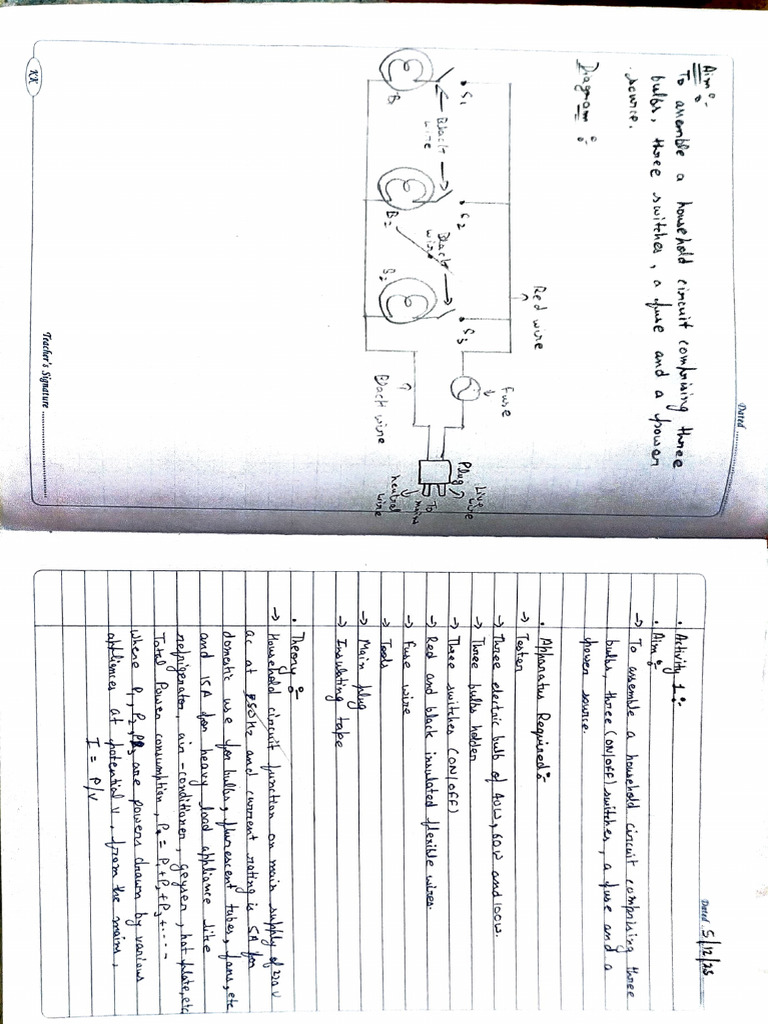 Dated
Aim :-
To assemble a household circuit comprising three
bulbs, three switches, a fuse and a power
source.
Diagram :-
Red wire
Fuse
S1
S2
S3
Black
wire
Black
wire
B
B2
Black wire
Plug
Live
wire
To
mains
neutral
wire
Teacher's Signature
KK
Dated 5/12/25
• Activity 1 :-
• Aim :-
→ To assemble a household circuit comprising three
bulbs, three (ON/OFF) switches, a fuse and a
power source.
• Apparatus Required :-
→ Tester
→ Three electric bulb of 40W, 60W and 100W.
→ Three bulbs holder
→ Three switches (ON/OFF)
→ Red and black insulated flexible wires.
→ Fuse wire
→ Tools
→ Main plug
→ Insulating tape
• Theory :-
→ Household circuit function on main supply of 220V
ac at 50Hz and current rating is 5A for
domestic use for bulbs, flurescent tubes, fans, etc
and 15A for heavy load appliance like
refrigerator, air-conditioner, geyser, hot plate, etc
Total Power consumption, P = P1 + P2 + P3 + ----
Where P1, P2, P3 are powers drawn by various
appliances at potential V, from the mains,
I = P/V